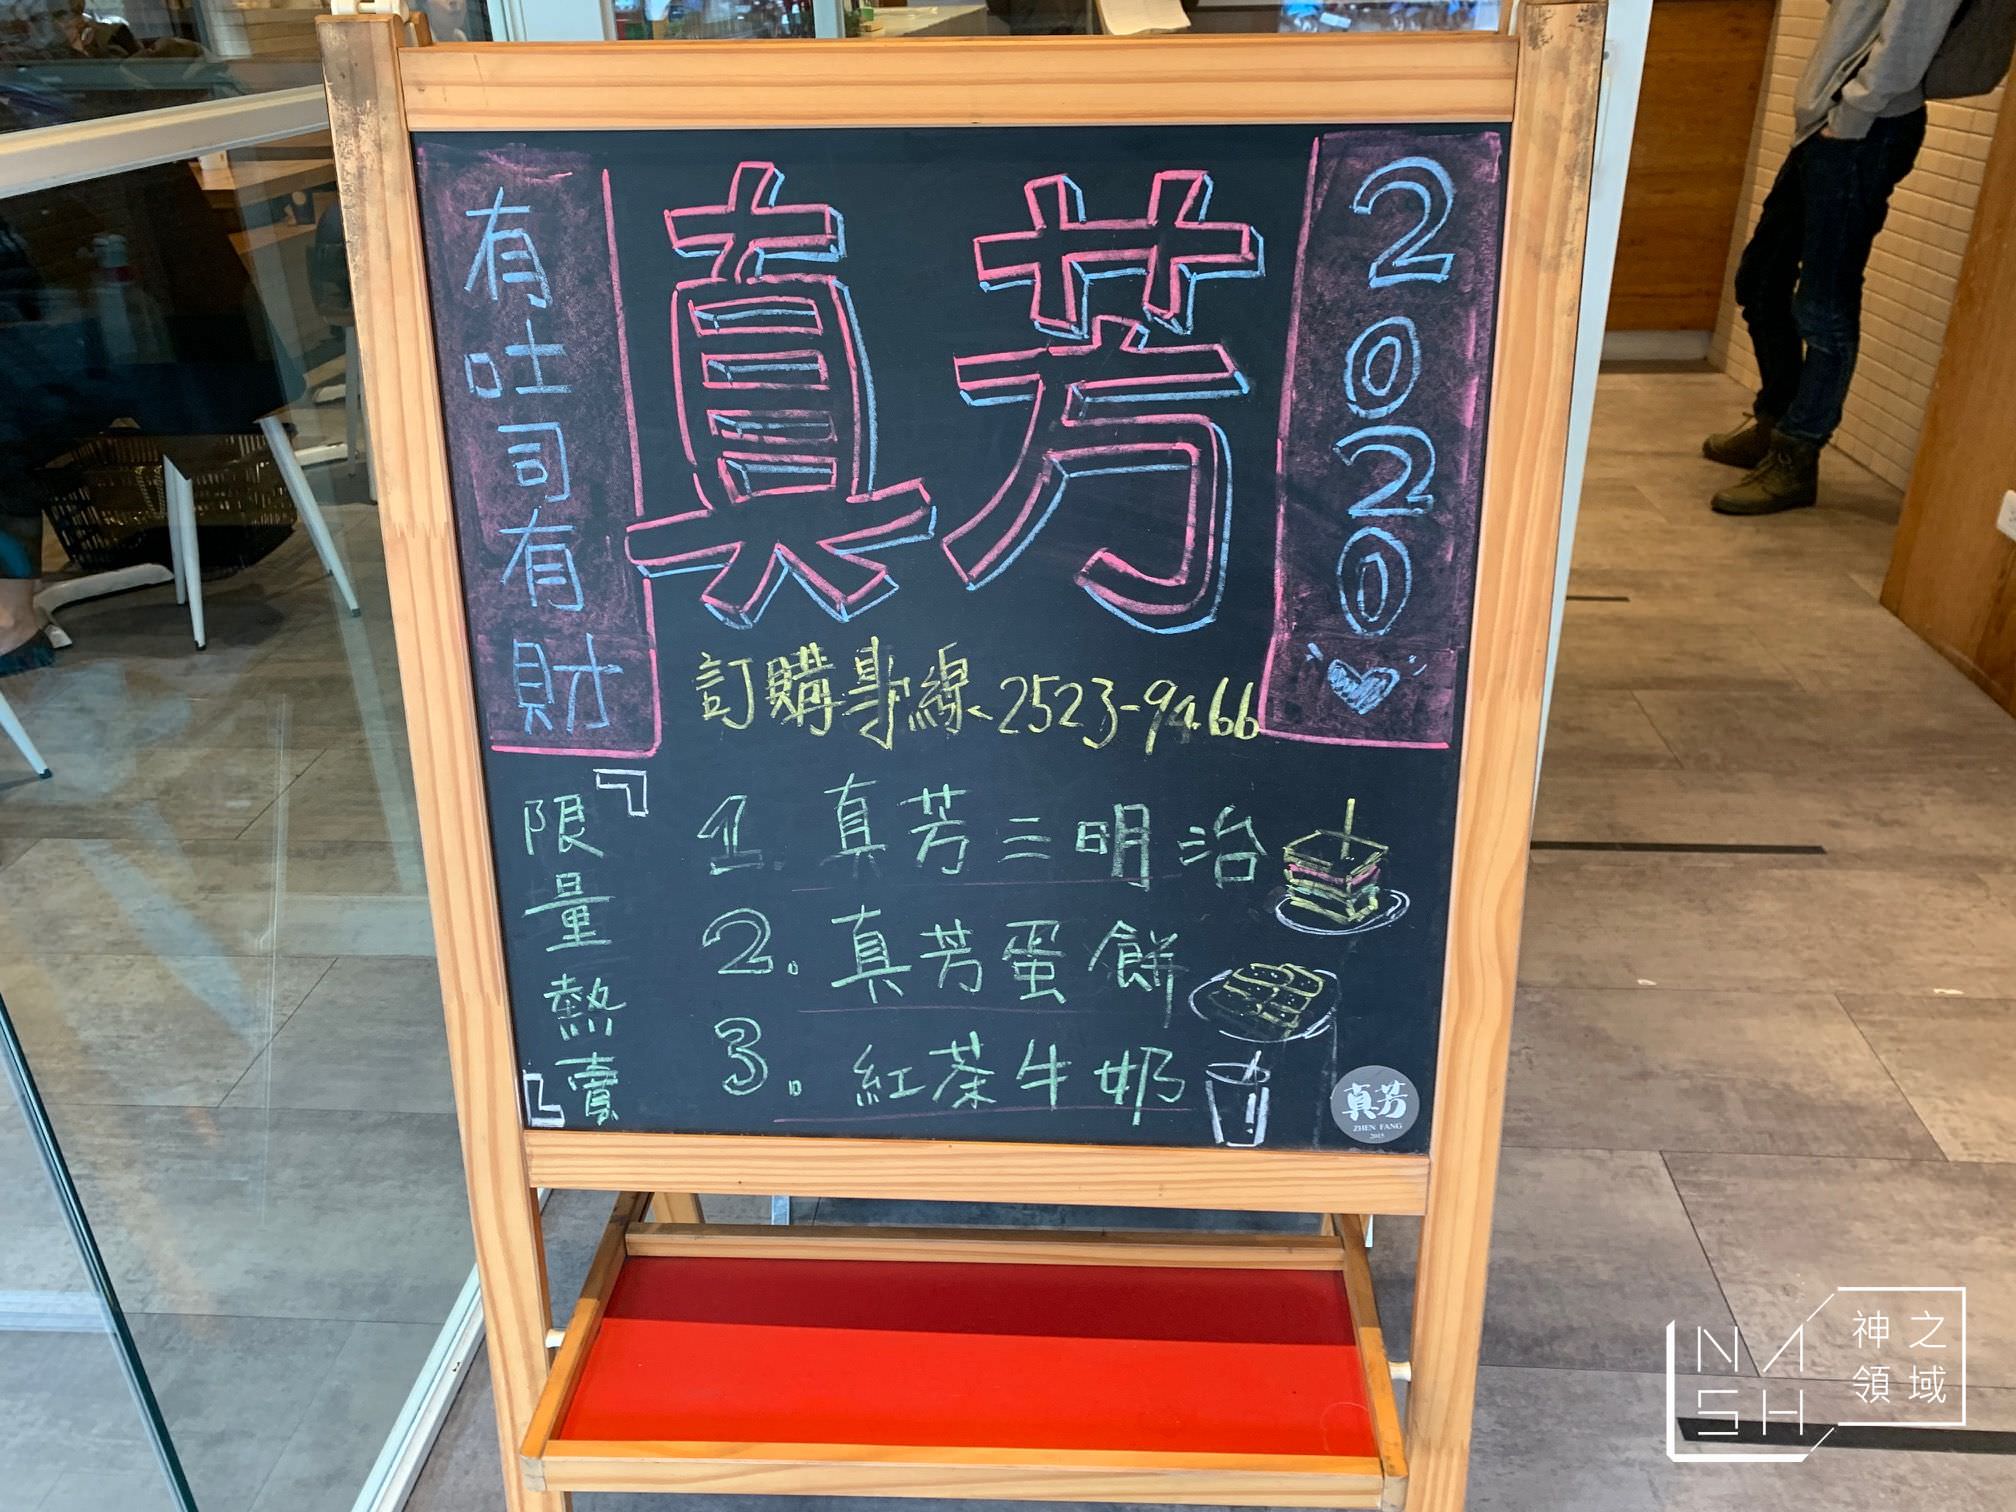 有吐司有財
真芳
2020
訂購專線 2523-9466
『限量熱賣』
1. 真芳三明治
2. 真芳蛋餅
3. 紅茶牛奶
真芳
ZHEN FANG
2015
NASH
神之領域